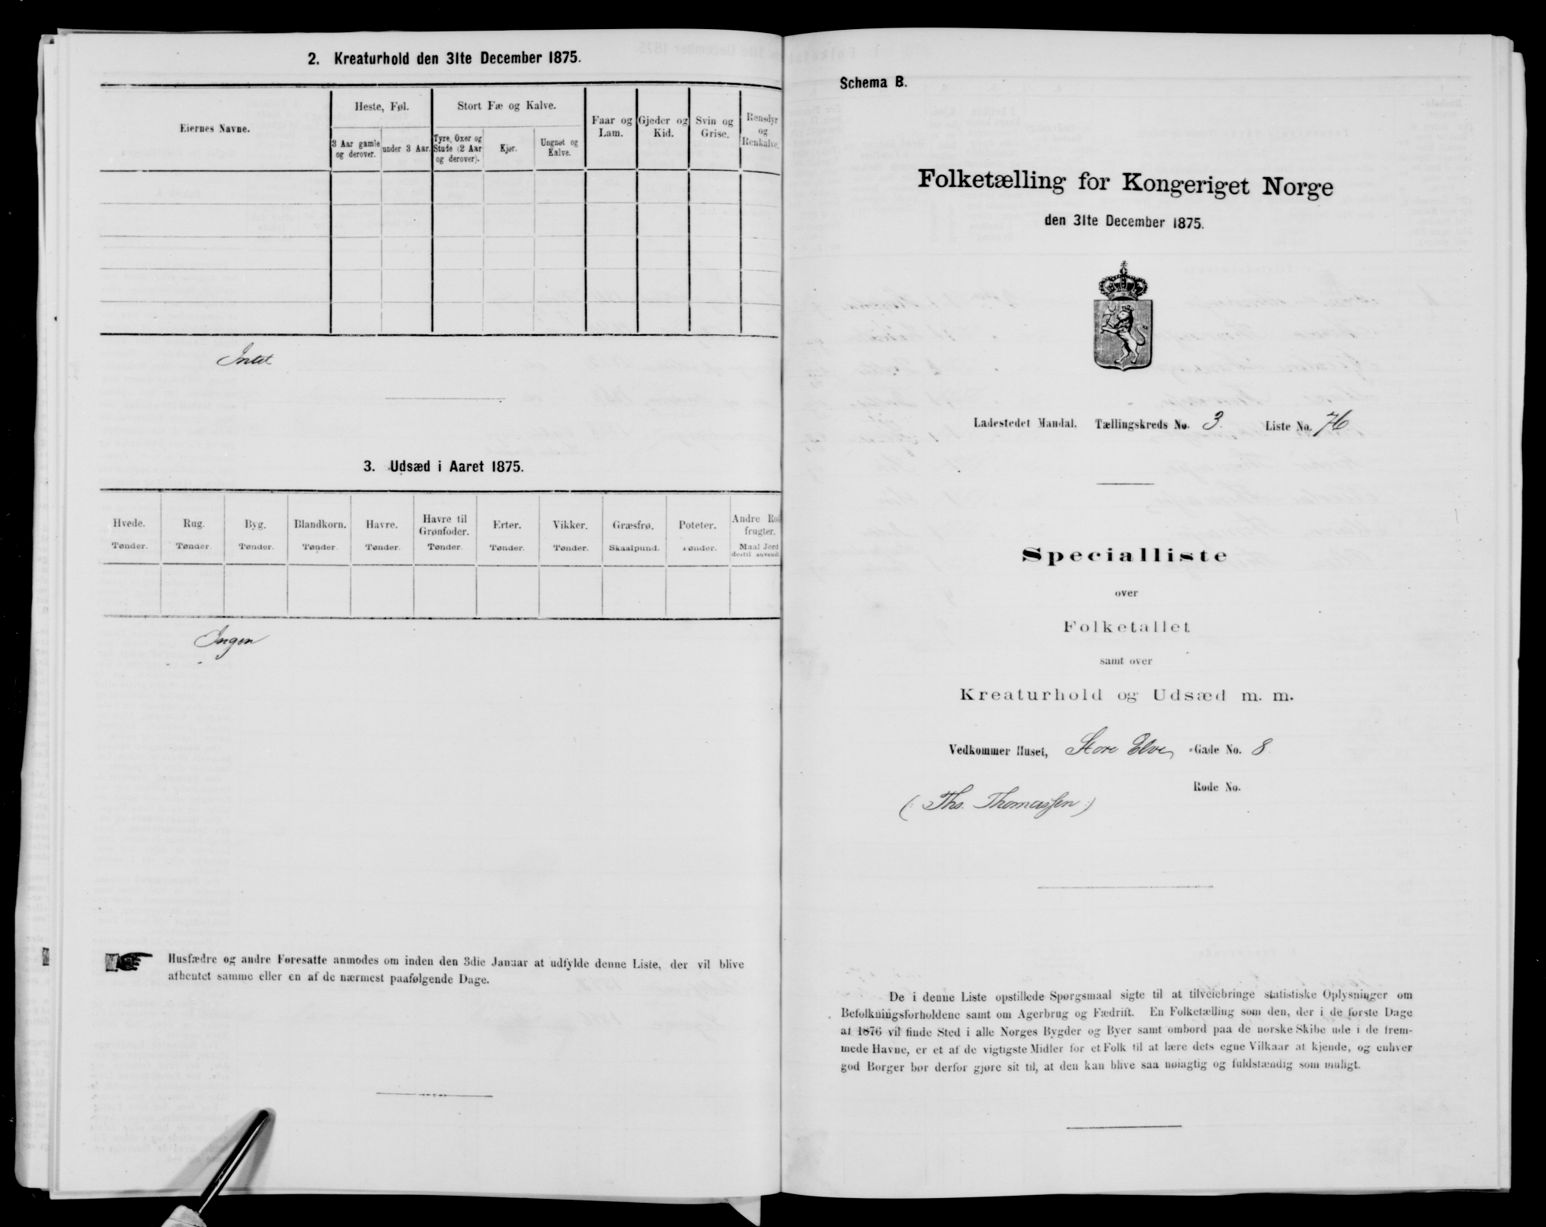 2. Kreaturhold den 31te December 1875.
Eiernes Navne.
Heste, Føl.
3 Aar gamle og derover.
under 3 Aar.
Stort Fæ og Kalve.
Tyre, Oxer og Stude (2 Aar og derover).
Kjør.
Ungnøt og Kalve.
Faar og Lam.
Gjeder og Kid.
Svin og Grise.
Rensdyr og Renkalve.
Intet
3. Udsæd i Aaret 1875.
Hvede. Tønder.
Rug. Tønder.
Byg. Tønder.
Blandkorn. Tønder.
Havre. Tønder.
Havre til Grønfoder. Tønder.
Erter. Tønder.
Vikker. Tønder.
Græsfrø. Skaalpund.
Poteter. Tønder.
Andre Rodfrugter. Maal Jord dertil anvendt
Ingen
Husfædre og andre Foresatte anmodes om inden den 3die Januar at udfylde denne Liste, der vil blive
afhentet samme eller en af de nærmest paafølgende Dage.
Schema B.
Folketælling for Kongeriget Norge
den 31te December 1875.
Ladestedet Mandal. Tællingskreds No. 3. Liste No. 76
Specialliste
over
Folketallet
samt over
Kreaturhold og Udsæd m. m.
Vedkommer Huset, Store Elve -Gade No. 8
Rode No.
(: Ths. Thomassen :)
De i denne Liste opstillede Spørgsmaal sigte til at tilveiebringe statistiske Oplysninger om
Befolkningsforholdene samt om Agerbrug og Fædrift. En Folketælling som den, der i de første Dage
af 1876 vil finde Sted i alle Norges Bygder og Byer samt ombord paa de norske Skibe ude i de frem-
mede Havne, er et af de vigtigste Midler for et Folk til at lære dets egne Vilkaar at kjende, og enhver
god Borger bør derfor gjøre sit til, at den kan blive saa nøiagtig og fuldstændig som muligt.